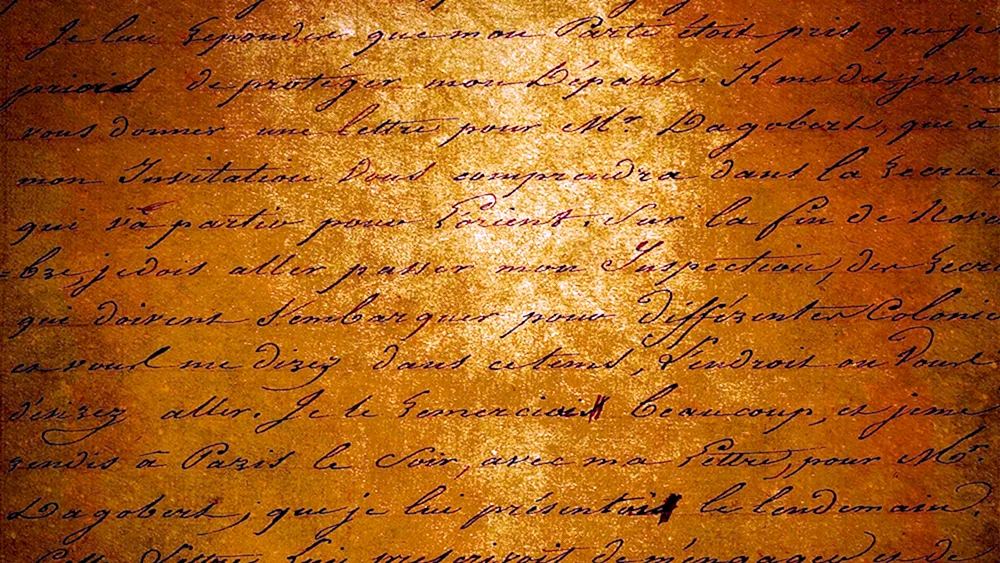 Je lui Repondis que mon Parti étoit pris que je
priois de protéger mon Départ. Il me dit, je va
vous donner une lettre pour Mr Dagobert, qui à
mon Invitation Vous comprendra dans la Recrue
qui va partir pour Lorient. Sur la fin de Nove
=bre, je dois aller passer mon Inspection, des Recru
qui doivent S'embarquer pour différentes Colonie
et vous me direz dans ce tems, L'endroit ou Vous
désirez aller. Je le Remerciais beaucoup, et je me
rendis à Paris le Soir, avec ma Lettre, pour Mr
Dagobert, que je lui présentais le lendemain.
Cette Lettre Lui prescrivoit de m'engager et de